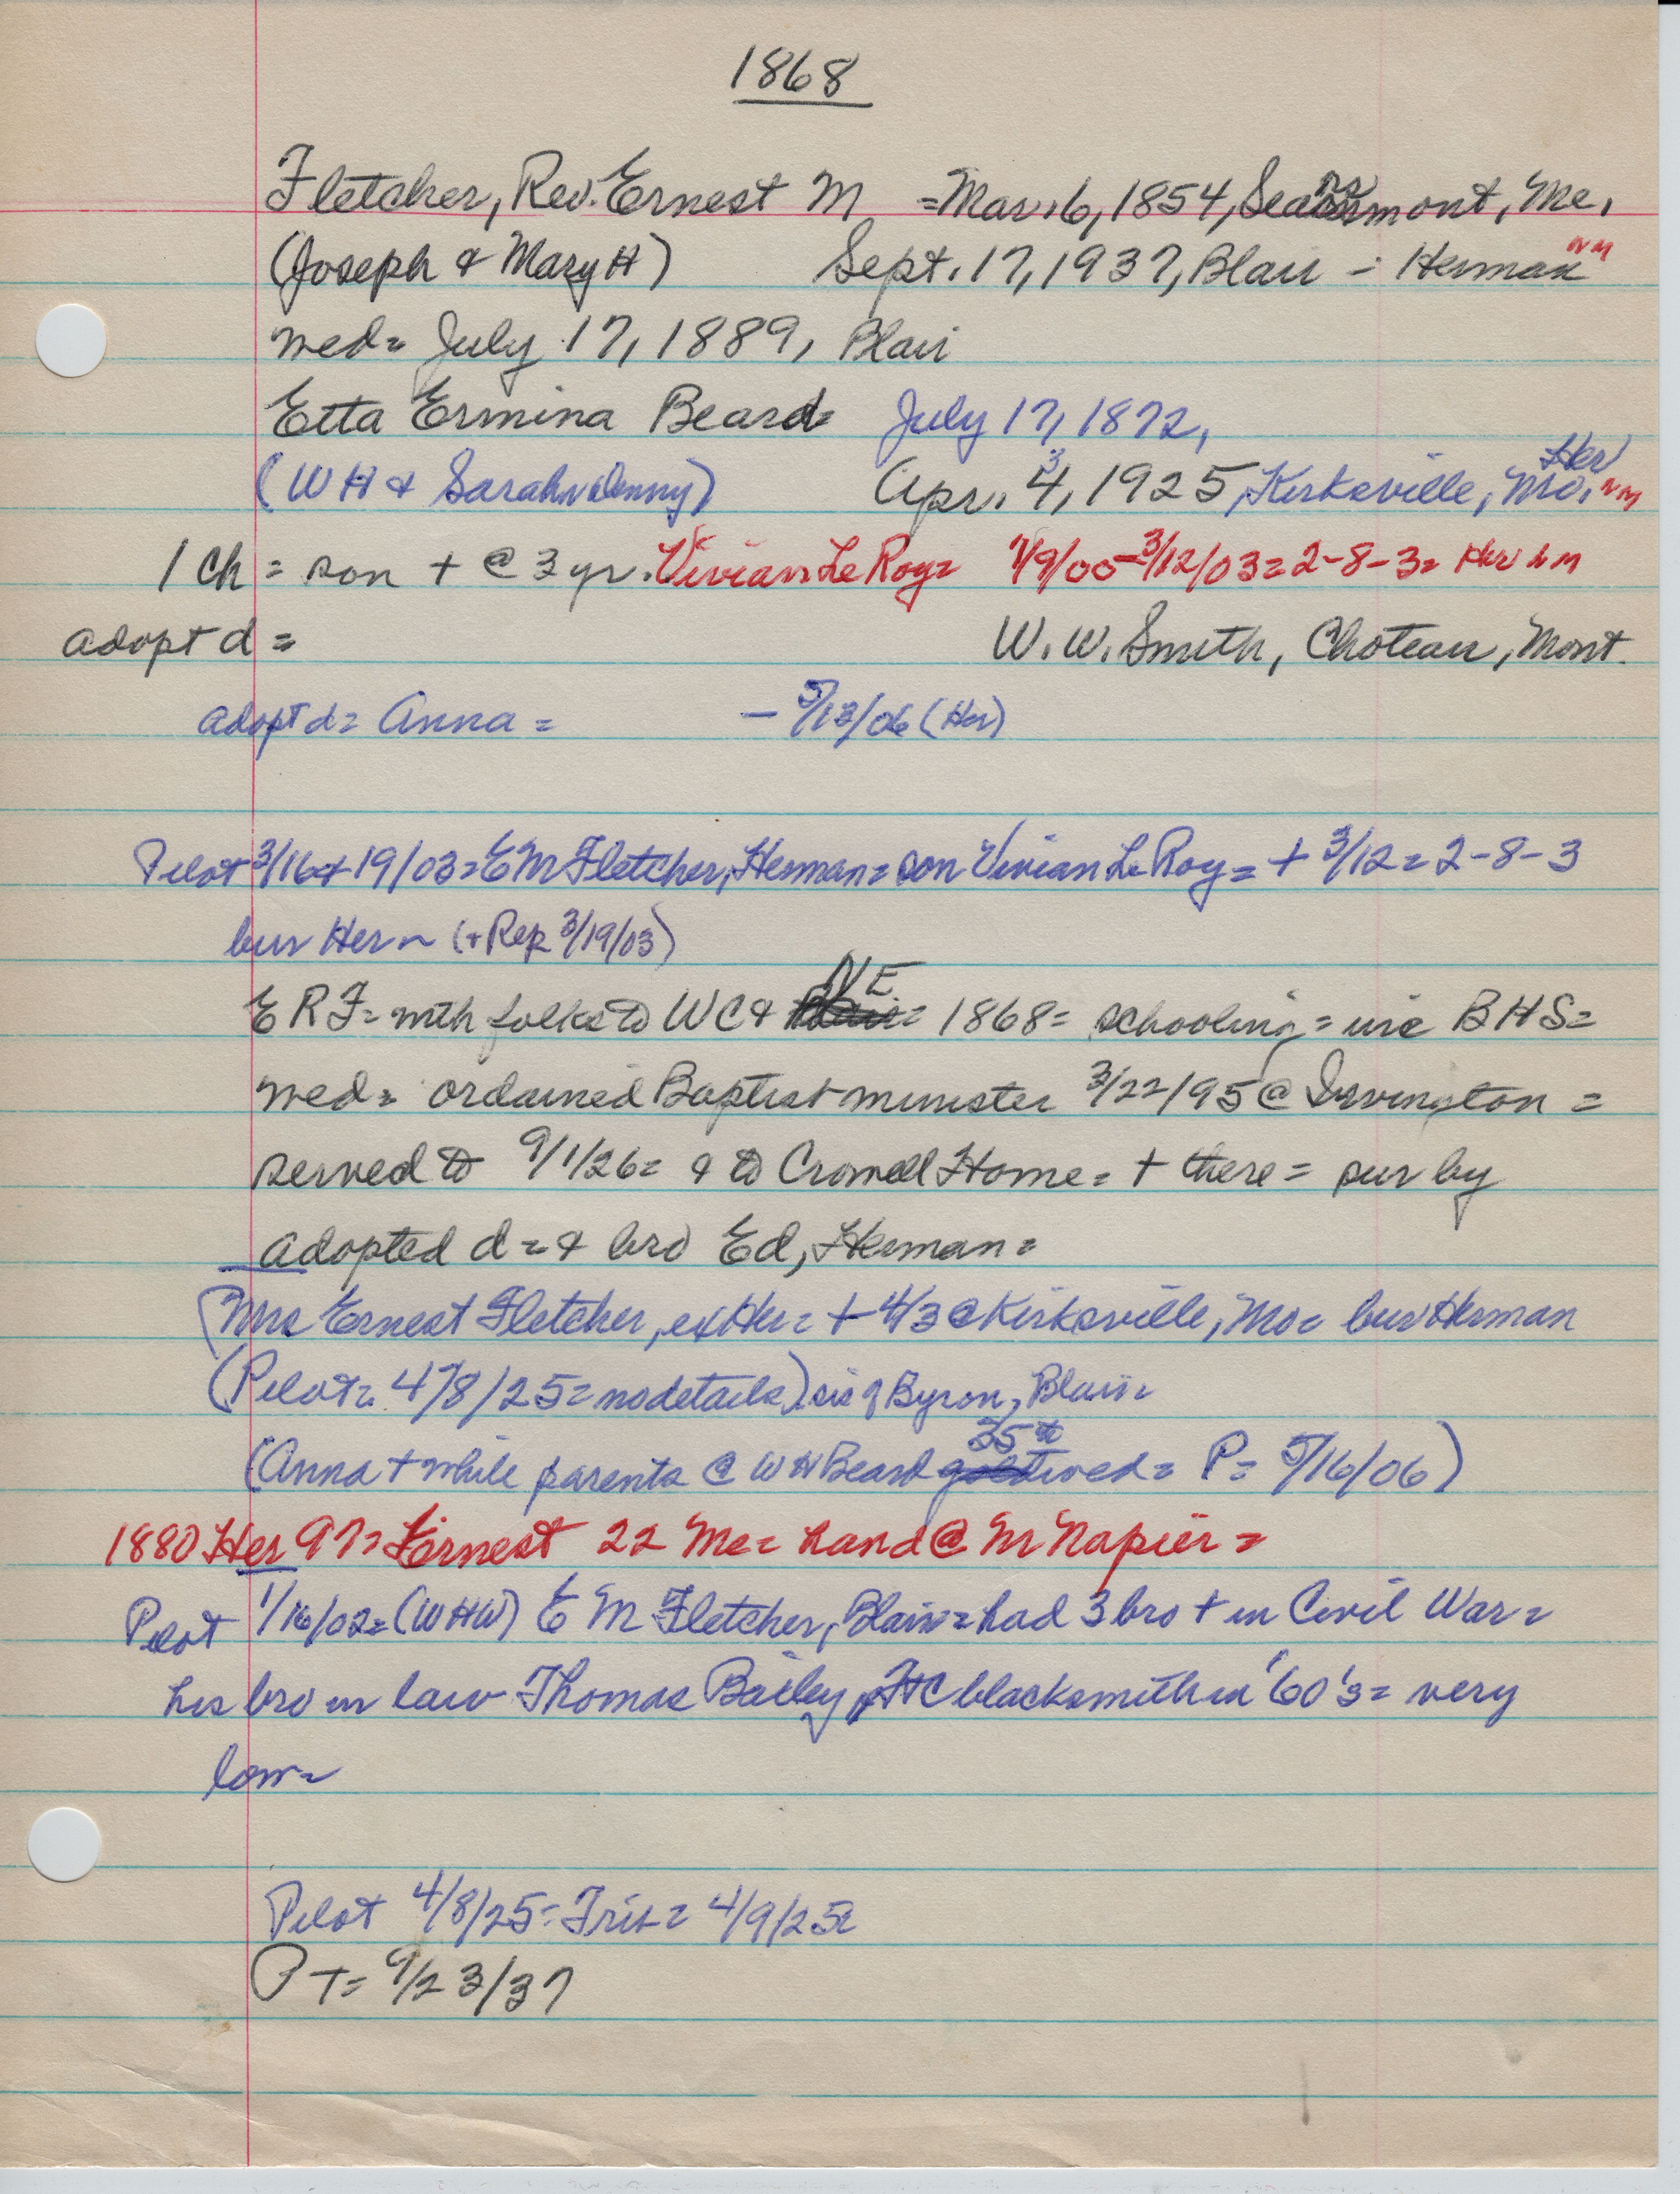 1868
Fletcher, Rev. Ernest M = Mar. 6, 1854, Searsmont, Me.
(Joseph & Mary H) Sept. 17, 1937, Blair - Herman nm
wed = July 17, 1889, Blair
Etta Ermina Beard = July 17, 1872,
(WH & Sarah Denny) Apr. 4, 3 1925, Kirksville, Mo. Her nm
1 Ch = son + @ 3 yr. Vivian LeRoy = 7/9/00 - 3/12/03 = 2-8-3 = Her nm
adopt d = W. W. Smith, Choteau, Mont.
adopt d = Anna = - 5/13/06 (Her)
Pilot 3/16 & 19/03 = E M Fletcher, Herman = son Vivian LeRoy = + 3/12 = 2-8-3
bur Her (+ Rep 3/19/03)
E R F = with folks to WC & NE = 1868 = schooling = inc BHS =
wed = ordained Baptist minister 3/22/95 @ Irvington =
served to 9/1/26 = & to Crowell Home = + there = sur by
adopted d = & bro Ed, Herman =
(Mrs Ernest Fletcher, ex Her = + 4/3 @ Kirksville, Mo = bur Herman
(Pilot = 4/8/25 = no details) sis of Byron, Blair =
(Anna + while parents @ WH Beard 35th wed = P = 5/16/06)
1880 Her 97 = Ernest 22 Me = hand @ M Napier =
Pilot 1/16/02 = (WHW) E M Fletcher, Blair = had 3 bro + in Civil War =
his bro in law Thomas Bailey, FtC blacksmith in '60's = very
low =
Pilot 4/8/25 = Trib = 4/9/25 =
PT = 9/23/37